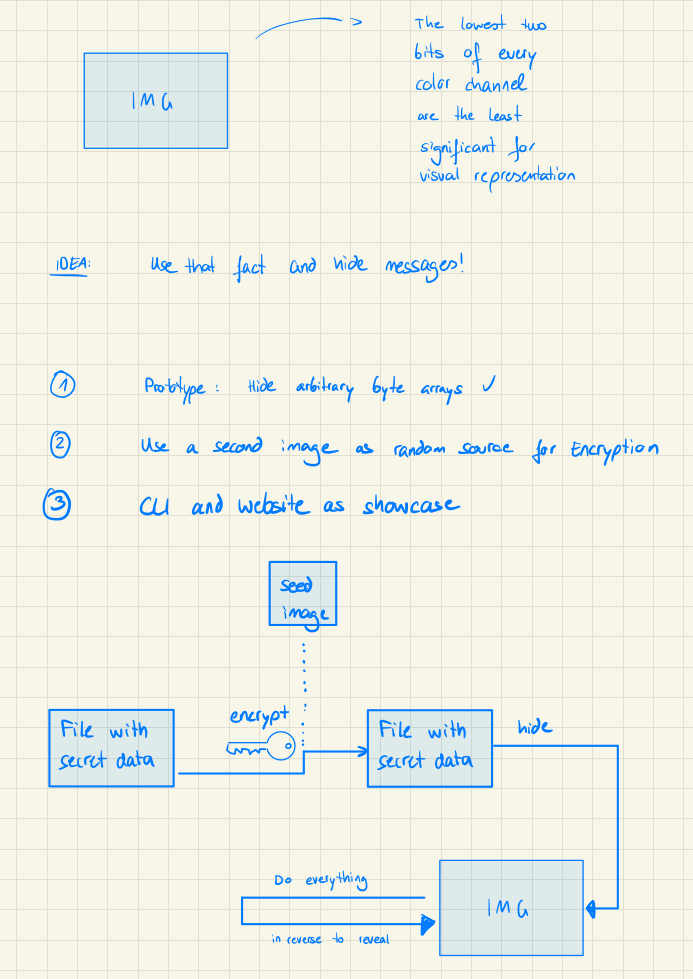 IMG
The lowest two
bits of every
color channel
are the least
significant for
visual representation
IDEA: Use that fact and hide messages!
1 Prototype: Hide arbitrary byte arrays ✓
2 Use a second image as random source for Encryption
3 CLI and website as showcase
seed
image
encrypt
File with
secret data
File with
secret data
hide
Do everything
in reverse to reveal
IMG